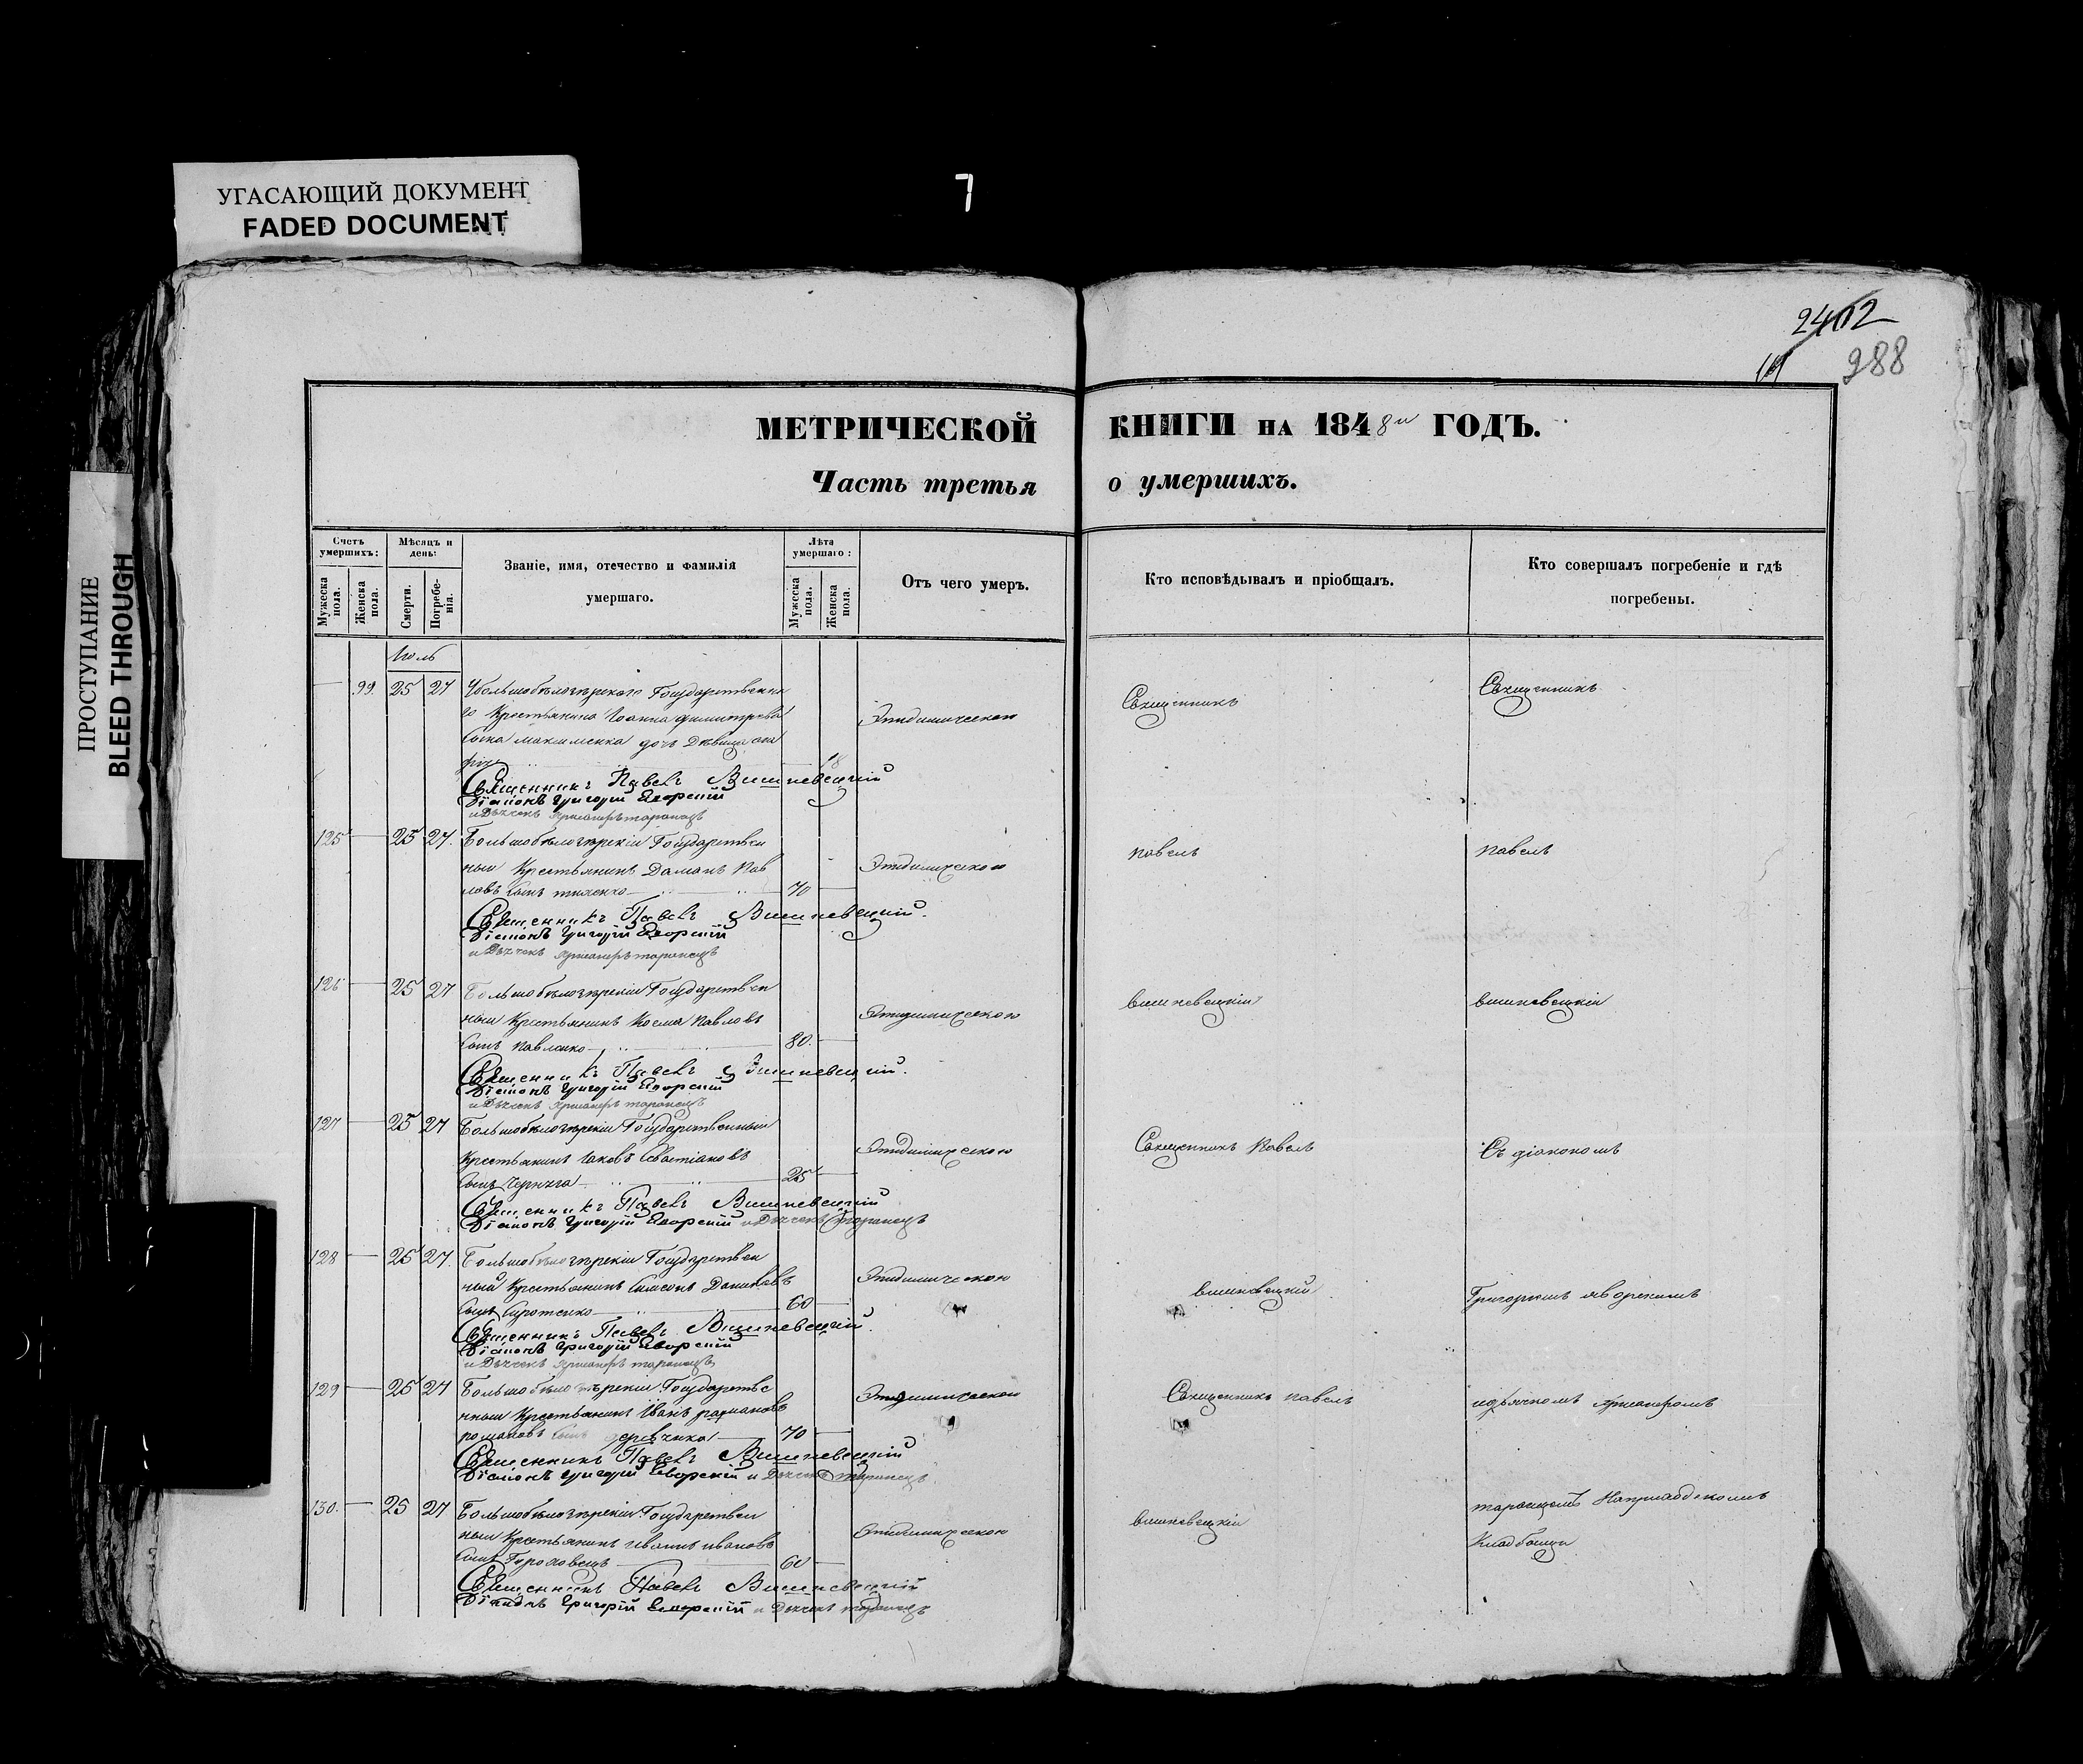 УГАСАЮЩИЙ ДОКУМЕНТ
FADED DOCUMENT
7
ПРОСТУПАНИЕ
BLEED THROUGH
2402
288
МЕТРИЧЕСКОЙ КНИГИ НА 1848й ГОДЪ.
Часть третья о умершихъ.
Счетъ умершихъ:
Мужеска пола.
Женска пола.
Мѣсяцъ и день:
Смерти.
Погребенія.
Званіе, имя, отечество и фамилія умершаго.
Лѣта умершаго:
Мужеска пола.
Женска пола.
Отъ чего умеръ.
Кто исповѣдывалъ и пріобщалъ.
Кто совершалъ погребеніе и гдѣ погребены.
Іюль
99. 25 27 Государственна
го Крестьянина Іоанна Димитрева
сына максименка дочь Дѣвица
18
Эпидимическою
Священникъ
Священникъ
Священникъ Павелъ Вишневецкій
Діаконъ Григорій Яворскій
и Дьячекъ
125 25 27. Большобѣлозѣрскій Государствен
ный Крестьянинъ Даманъ Пав
ловъ сынъ 70
Эпидимическою
павелъ
павелъ
Священникъ Павелъ Вишневецкій.
Діаконъ Григорій Яворскій
и Дьячекъ
126 25 27 Большобѣлозѣрскій Государствен
ный Крестьянинъ Косма Павловъ
сынъ Павленко 80.
Эпидимическою
вишневецкій
вишневецкій
Священникъ Павелъ Вишневецкій.
Діаконъ Григорій Яворскій
и Дьячекъ
127 25 27 Большобѣлозѣрскій Государственный
Крестьянинъ Іаковъ Севастіановъ
сынъ 25
Эпидимическою
Священникъ Павелъ
Съ діакономъ
Священникъ Павелъ Вишневецкій
Діаконъ Григорій Яворскій и Дьячекъ
128 25 27. Большобѣлозѣрскій Государствен
ный Крестьянинъ Симеонъ Даниловъ
сынъ Сиротенко 60
Эпидимическою
вишневецкій
Григоріемъ яворскимъ
Священникъ Павелъ Вишневецкій.
Діаконъ Григорій Яворскій
и Дьячекъ
129 25 27 Большобѣлозѣрскій Государстве
нный Крестьянинъ Иванъ
романовъ сынъ 70
Эпидимическою
Священникъ павелъ
идьячкомъ
Священникъ Павелъ Вишневецкій
Діаконъ Григорій Яворскій и Дьячекъ
130. 25 27 Большобѣлозѣрскій Государствен
ный Крестьянинъ ивановъ
сынъ 60
Эпидимическою
вишневецкій
Наприходскомъ
Кладбищи
Священникъ Павелъ Вишневецкій
Діаконъ Григорій Яворскій и Дьячекъ